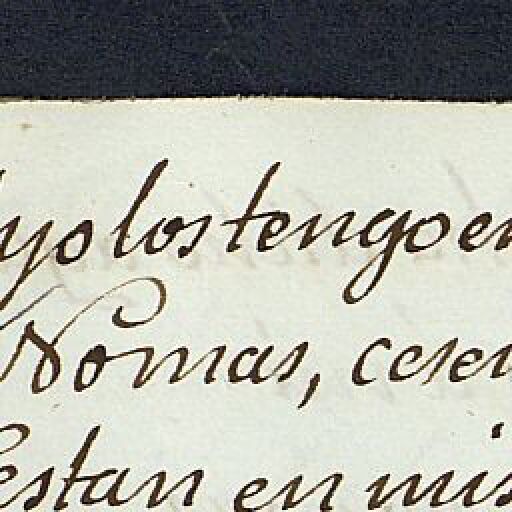 yo los tengo en
Nomas, cesen
estan en mis